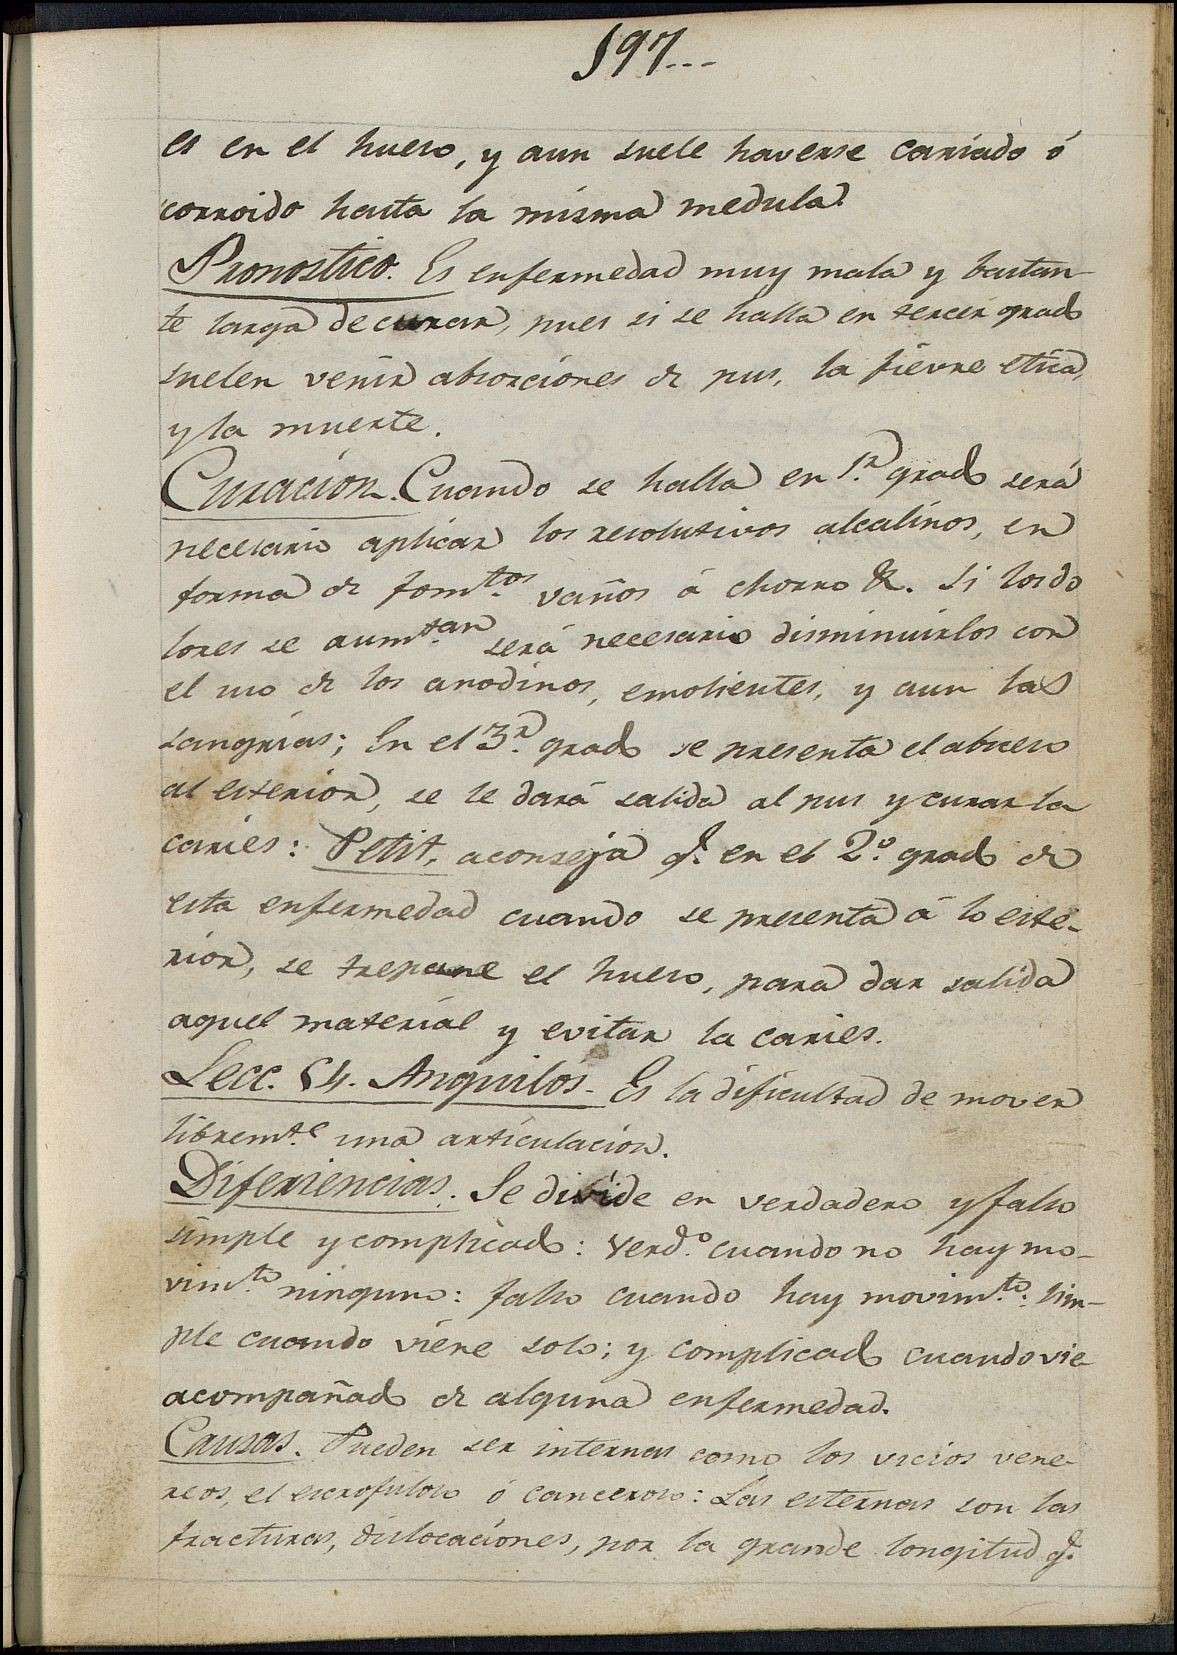 197...
es en el hueso, y aun suele haverse cariado ó
corroido hasta la misma medula.
Pronostico. Es enfermedad muy mala y bastan-
te larga de curar, pues si se halla en tercer grado
suelen venir absorciones de pus, la fievre etica,
y la muerte.
Curacion. Cuando se halla en 1.r grado será
necesario aplicar los resolutivos alcalinos, en
forma de fom.tos vaños á chorro &. Si los do
lores se aum.tan será necesario disminuirlos con
el uso de los anodinos, emolientes, y aun las
sangrias; En el 3.r grado se presenta el absceso
al esterior, se le dará salida al pus y curar la
caries: Petit, aconseja q.e en el 2.o grado de
esta enfermedad cuando se presenta á lo este-
rior, se trepane el hueso, para dar salida
aquel material y evitar la caries.
Lecc. 54. Anquilos- Es la dificultad de mover
librem.te una articulacion.
Diferiencias. Se divide en verdadero y falso
simple y complicado: Verd.o cuando no hay mo-
vim.to ninguno: falso cuando hay movim.to: Sim-
ple cuando viene solo; y complicado cuando vie
acompañado de alguna enfermedad.
Causas. Pueden ser internas como los vicios vene-
reos, el escrofuloso ó canceroso: Las esternas son las
fracturas, dislocaciones, por la grande longitud q.e